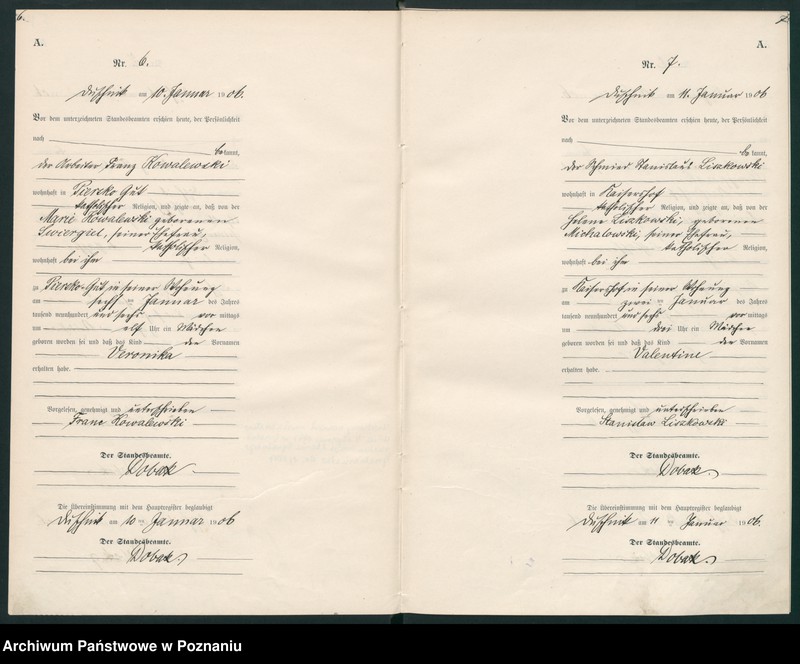 6.
A.
Nr. 6.
Duschnik am 10. Januar 1906.
Vor dem unterzeichneten Standesbeamten erschien heute, der Persönlichkeit
nach
bekannt,
der Arbeiter Franz Kowalewski
wohnhaft in Piersko Gut
katholischer Religion, und zeigte an, daß von der
Marie Kowalewski geborenen
Swiergiel, seiner Ehefrau,
katholischer Religion,
wohnhaft bei ihm
zu Piersko-Gut in seiner Wohnung
am sechs ten Januar des Jahres
tausend neunhundert und sechs vor mittags
um elf Uhr ein Mädchen
geboren worden sei und daß das Kind den Vornamen
Veronika
erhalten habe.
Vorgelesen, genehmigt und unterschrieben
Franc Kowalewśki
Der Standesbeamte.
Die Übereinstimmung mit dem Hauptregister beglaubigt
Duschnik am 10 ten Januar 1906
Der Standesbeamte.
7.
A.
Nr. 7.
Duschnik am 11. Januar 1906
Vor dem unterzeichneten Standesbeamten erschien heute, der Persönlichkeit
nach
bekannt,
der Schmied Stanislaus Liszkowski
wohnhaft in Kaisershof
katholischer Religion, und zeigte an, daß von der
Helene Liszkowski, geborenen
Michalowski, seiner Ehefrau,
katholischer Religion,
wohnhaft bei ihm
zu Kaisershof in seiner Wohnung
am zwei ten Januar des Jahres
tausend neunhundert und sechs vor mittags
um drei Uhr ein Mädchen
geboren worden sei und daß das Kind den Vornamen
Valentine
erhalten habe.
Vorgelesen, genehmigt und unterschrieben
Stanisław Liszkowski
Der Standesbeamte.
Die Übereinstimmung mit dem Hauptregister beglaubigt
Duschnik am 11 ten Januar 1906.
Der Standesbeamte.
Archiwum Państwowe w Poznaniu